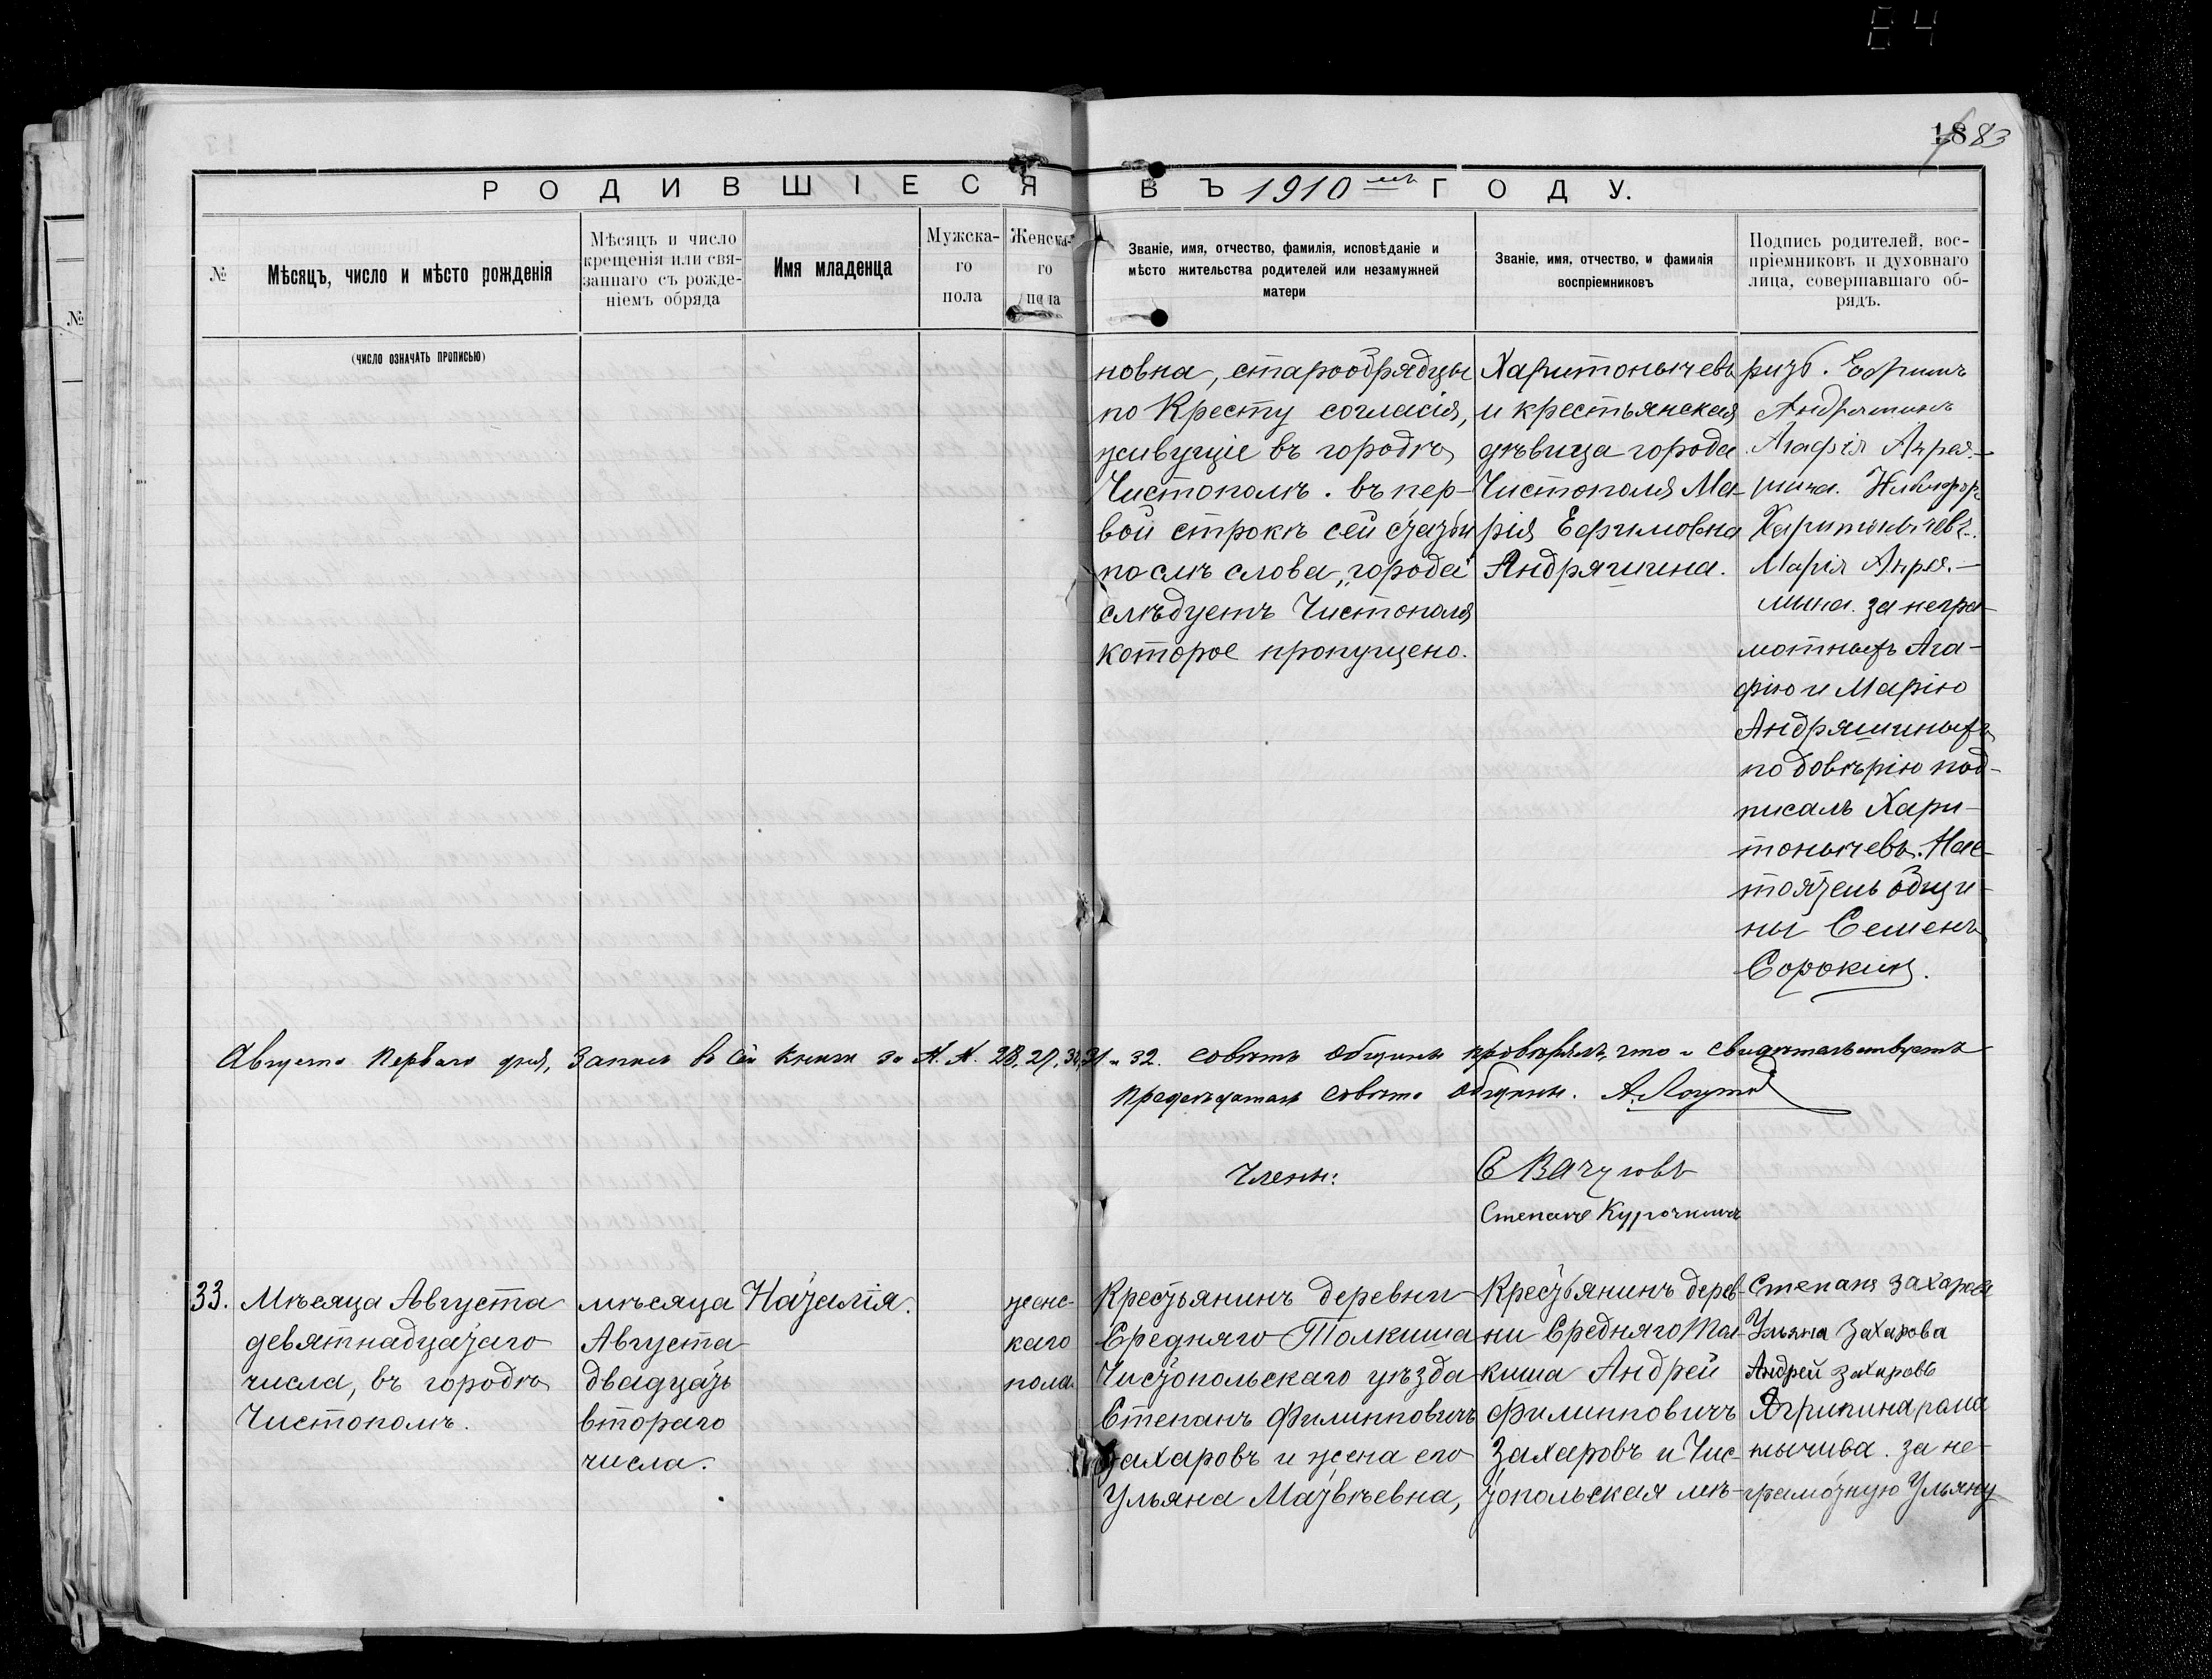 84
18 83
РОДИВШІЕСЯ ВЪ 1910мъ ГОДУ.
№
Мѣсяцъ, число и мѣсто рожденія
Мѣсяцъ и число
крещенія или свя-
заннаго съ рожде-
ніемъ обряда
Имя младенца
Мужска-
го
пола
Женска-
го
пола
Званіе, имя, отчество, фамилія, исповѣданіе и
мѣсто жительства родителей или незамужней
матери
Званіе, имя, отчество, и фамилія
воспріемниковъ
Подпись родителей, вос-
пріемниковъ и духовнаго
лица, совершавшаго об-
рядъ.
(число означать прописью)
новна, старообрядцы
по Кресту согласія,
живущіе въ городѣ
Чистополѣ. въ пер-
вой строкѣ сей статьи
послѣ слова „города"
слѣдуетъ Чистополя
которое пропущено.
Харитонычевъ
и крестьянская
дѣвица города
Чистополя Ма-
рія Ефимовна
Андряшина.
Ефримъ
Андряшинъ
Агафія Анрея-
шина.
Харитонычевъ.
Марія Анрея-
шина. за негра-
мотныхъ Ага-
фію и Марію
Андряшиныхъ
по довѣрію под-
писалъ Хари-
тонычевъ. Нас-
тоятель общи-
ны Семенъ
Сорокинъ.
Августа Перваго дня, Запись въ сей книги за №. №. 28, 29, 30, 31 и 32. совѣтъ общины провѣрялъ, что и свидетельствуетъ
Председатель совѣта общины.
Члены:
С Вачуговъ
Степанъ Курочкинъ
33.
Мѣсяца Августа
девятнадцатаго
числа, въ городѣ
Чистополѣ.
мѣсяца
Августа
двадцать
втораго
числа.
Наталія.
женс-
каго
пола
Крестьянинъ деревни
Средняго Толкиша
Чистопольскаго уѣзда
Степанъ Филипповичъ
Захаровъ и жена его
Ульяна Матвѣевна,
Крестьянинъ дерев-
ни Средняго Тол-
киша Андрей
Филипповичъ
Захаровъ и Чис-
топольская мѣ-
Степанъ Захаровъ
Ульяна Захарова
Андрей Захаровъ
Агрипина рама
нычива. за не-
грамотную Ульяну